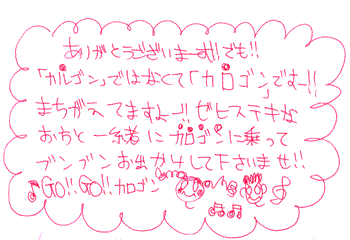 ありがとうございまーす!!でも!!
「カルゴン」ではなくて「カロゴン」ですー!!
まちがえてますよー!!ゼヒステキな
おちと一緒にカロゴンに乗って
ブンブンお出かけして下さいませ!!
GO!!GO!!カロゴン